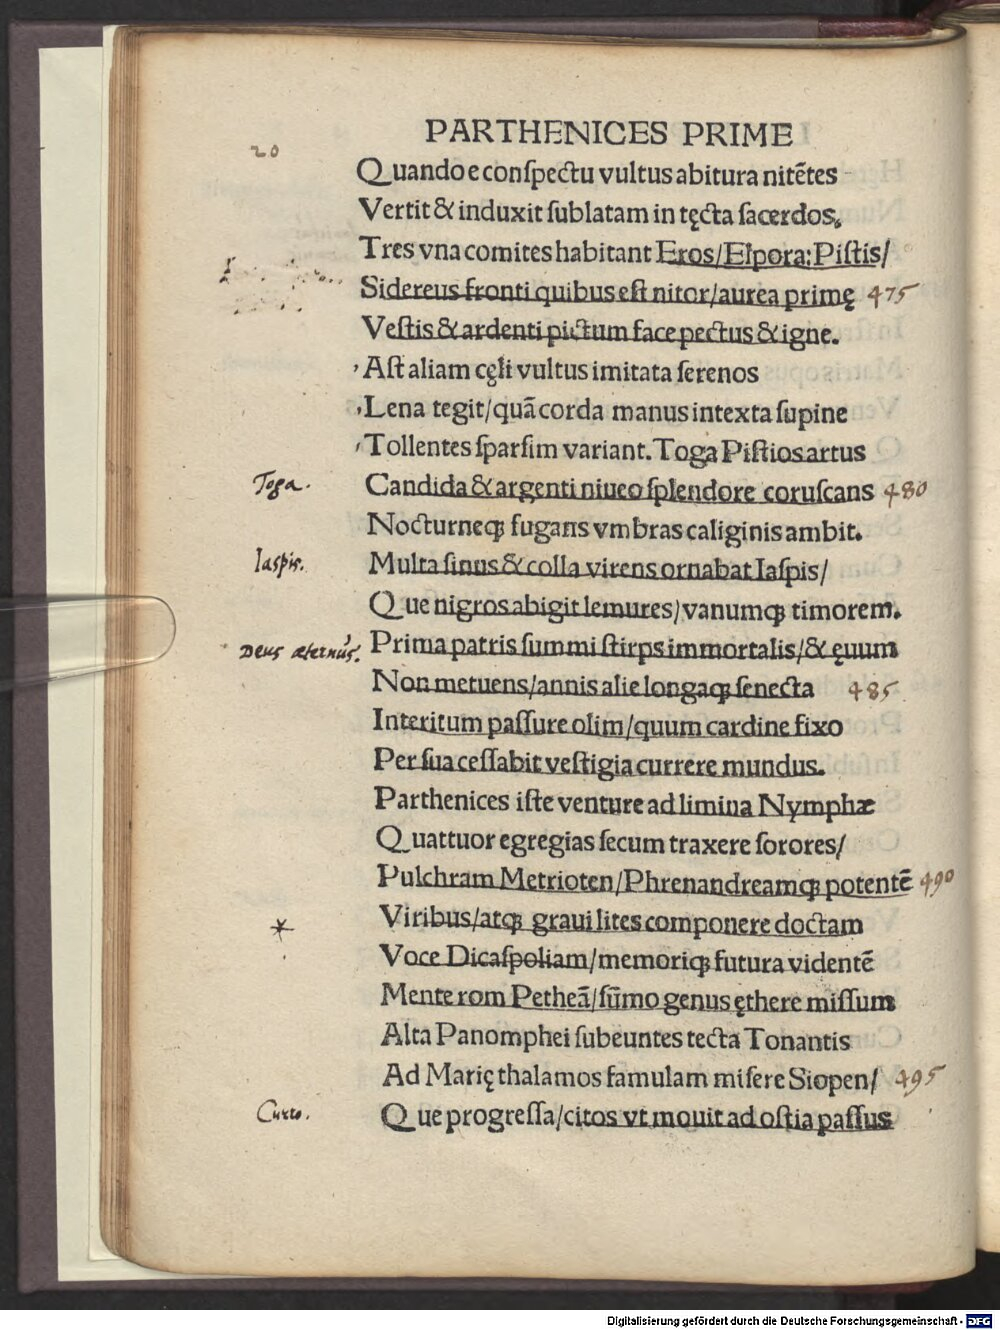 PARTHENICES PRIME
20
Quando e conſpectu vultus abitura nitẽtes
Vertit & induxit ſublatam in tęcta ſacerdos,
Tres vna comites habitant Eros/Elpora:Piſtis/
Sidereus fronti quibus eſt nitor/aurea primę 475
Veſtis & ardenti pictum face pectus & igne.
Aſt aliam cęli vultus imitata ſerenos
Lena tegit/quã corda manus intexta ſupine
Tollentes ſparſim variant. Toga Piſtios artus
Toga. Candida & argenti niueo ſplendore coruſcans 480
Nocturneqꝫ fugans vmbras caliginis ambit.
Iaſpis. Multa ſinus & colla virens ornabat Iaſpis/
Que nigros abigit lemures/vanumqꝫ timorem.
Deus æternus. Prima patris ſummi ſtirps immortalis/& ęuum
Non metuens/annis alie longaqꝫ ſenecta 485
Interitum paſſure olim/quum cardine fixo
Per ſua ceſſabit veſtigia currere mundus.
Parthenices iſte venture ad limina Nymphæ
Quattuor egregias ſecum traxere ſorores/
Pulchram Metrioten/Phrenandreamqꝫ potentẽ 490
Viribus/atqꝫ graui lites componere doctam
Voce Dicaſpoliam/memoriqꝫ futura videntẽ
Mente rom Petheã/ſũmo genus ęthere miſſum
Alta Panomphei ſubeuntes tecta Tonantis
Ad Marię thalamos famulam miſere Siopen/ 495
Curto. Que progreſſa/citos vt mouit ad oſtia paſſus
Digitalisierung gefördert durch die Deutsche Forschungsgemeinschaft - DFG